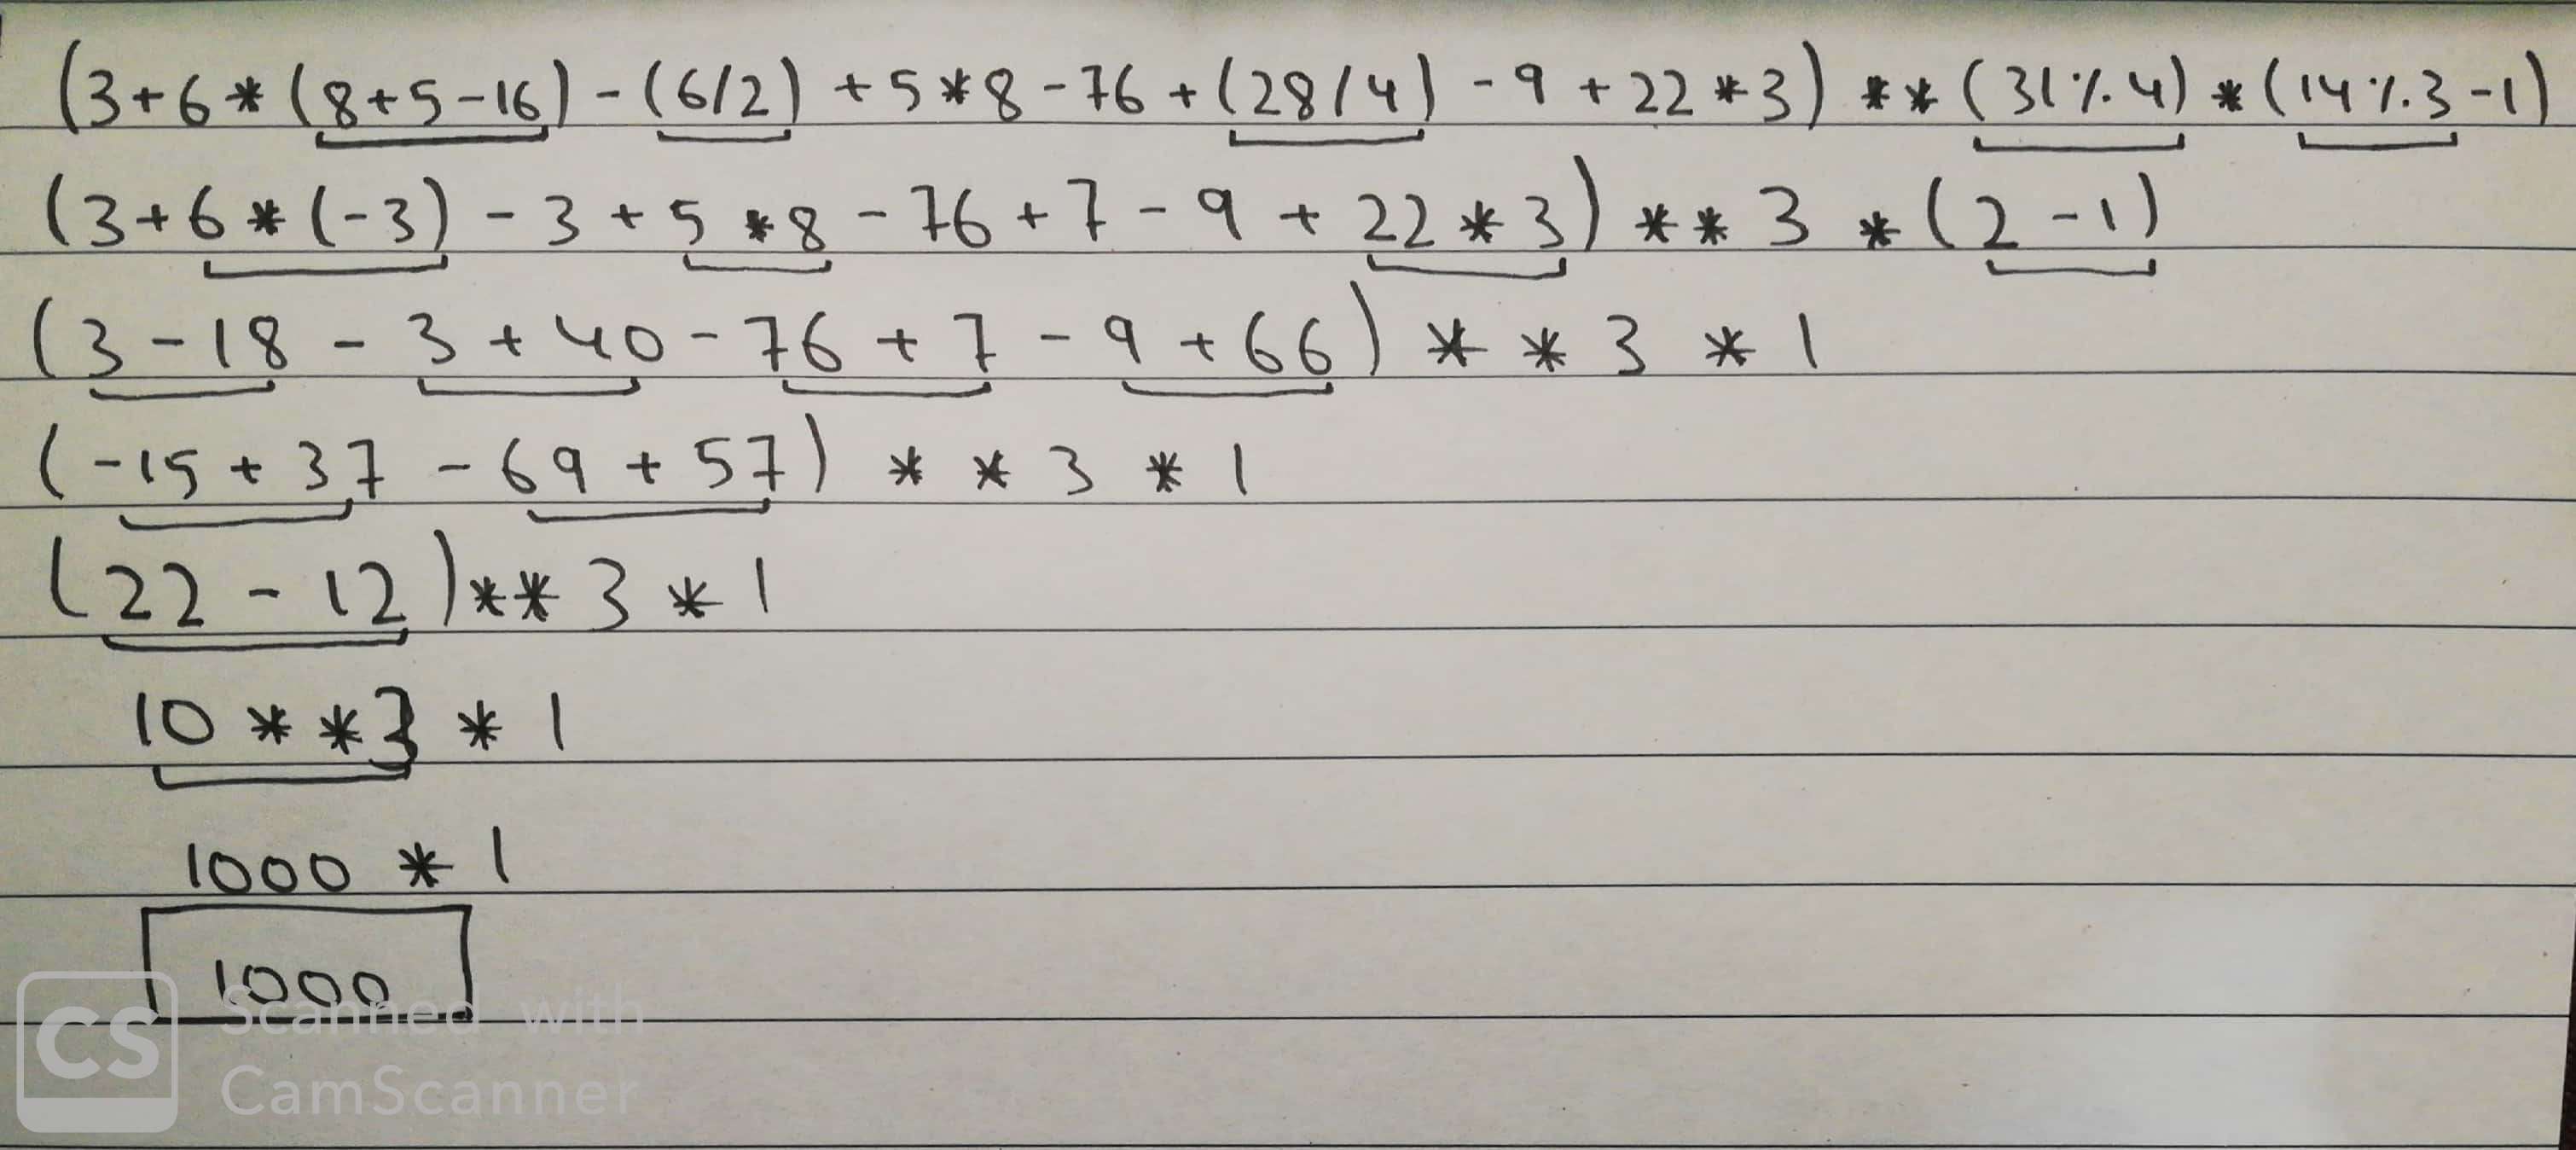 (3+6*(8+5-16)-(6/2)+5*8-76+(28/4)-9+22*3)**(31%4)*(14%3-1)
(3+6*(-3)-3+5*8-76+7-9+22*3)**3*(2-1)
(3-18-3+40-76+7-9+66)**3*1
(-15+37-69+57)**3*1
(22-12)**3*1
10**3*1
1000*1
1000
CS Scanned with
CamScanner